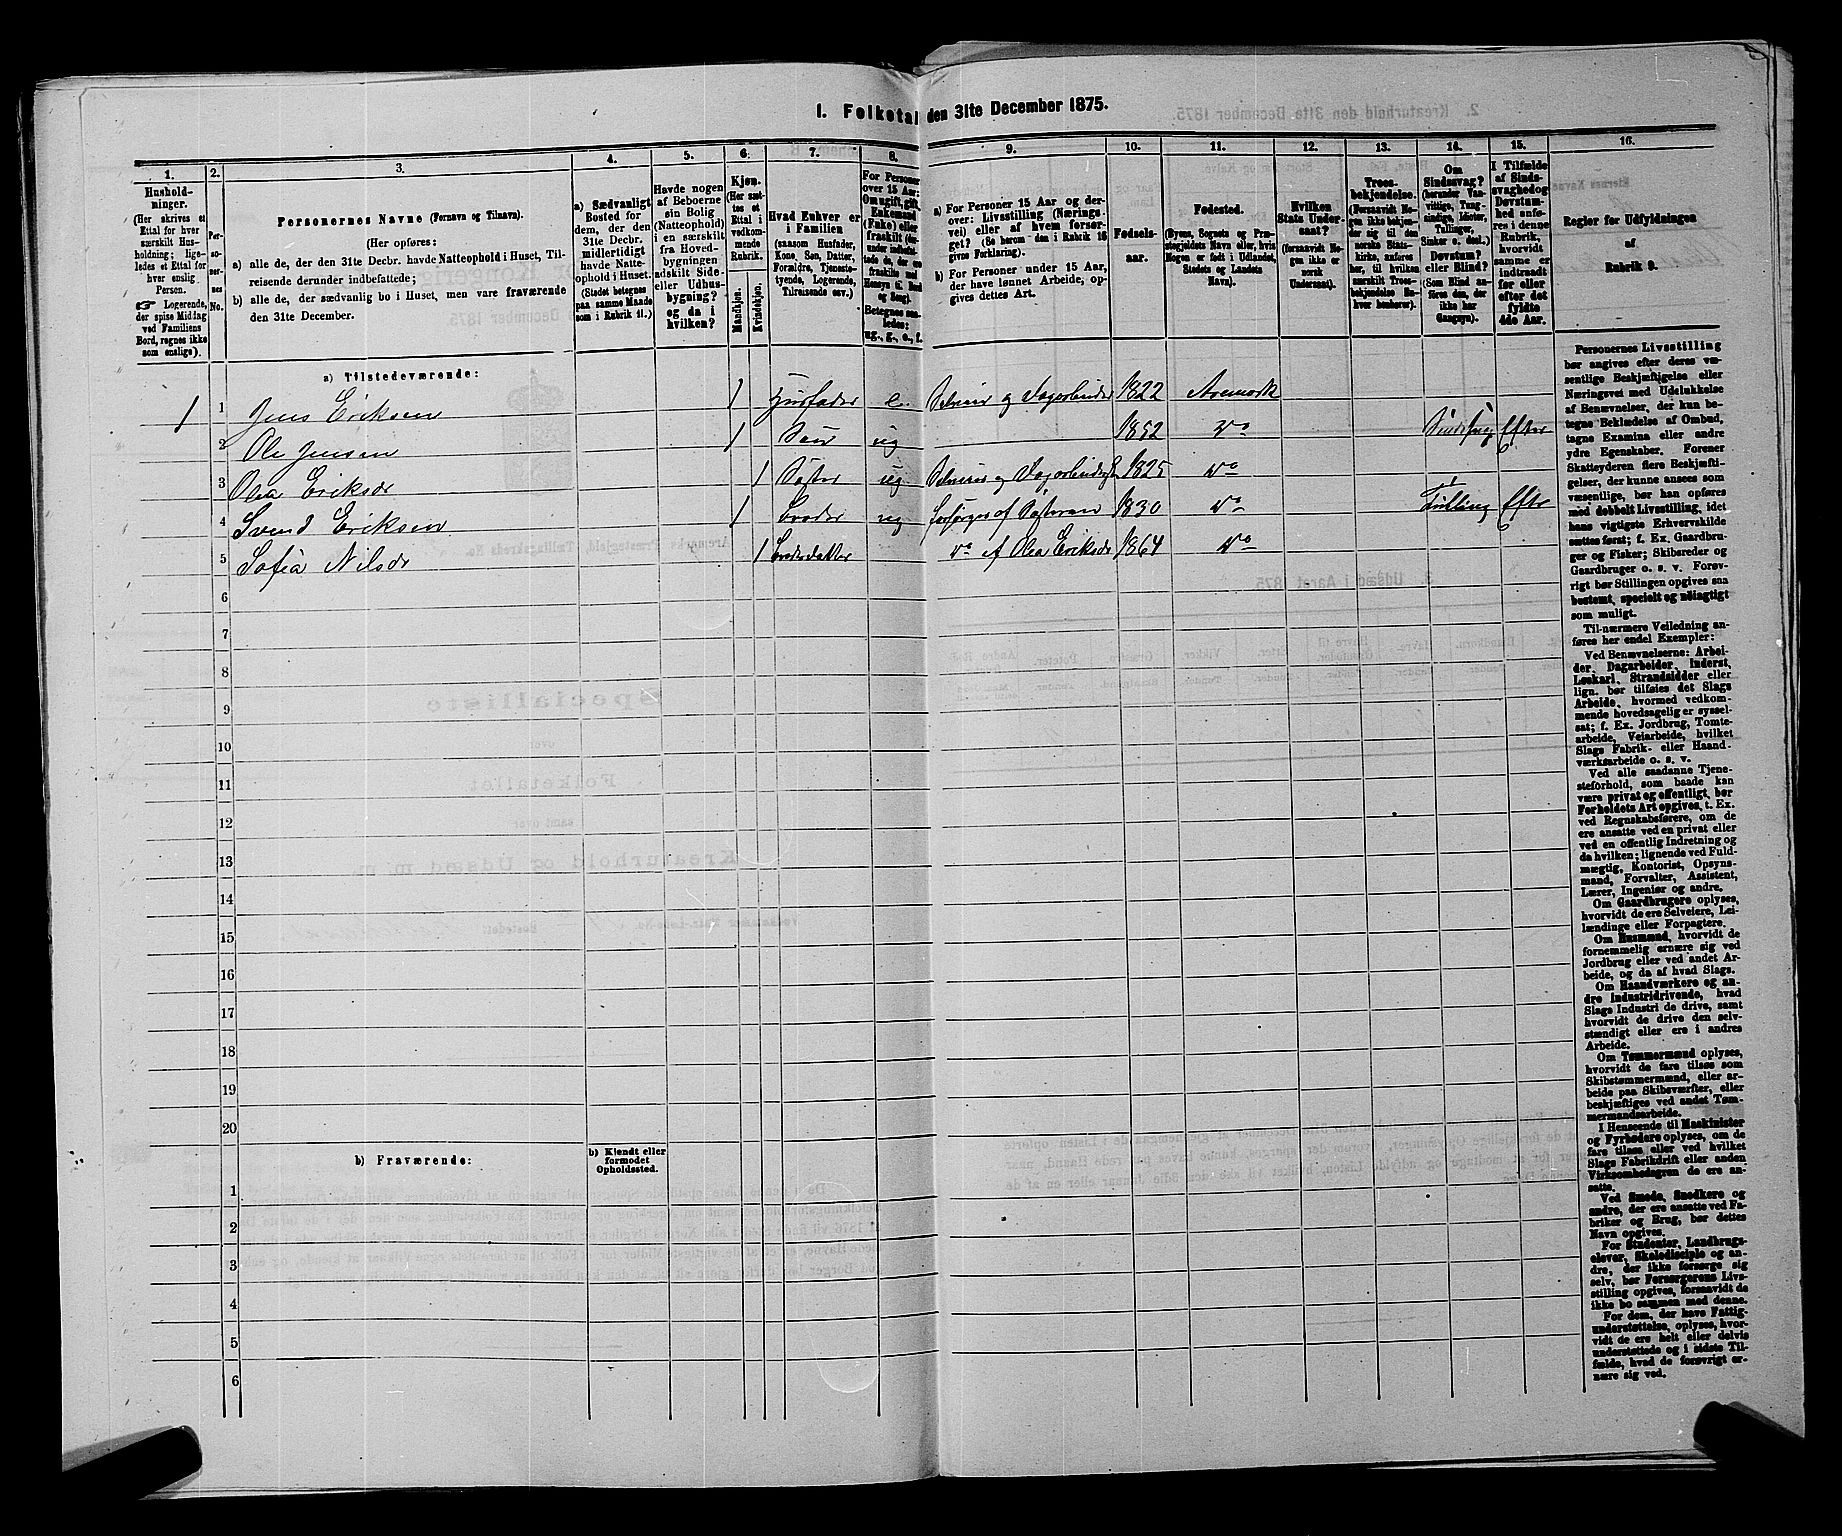 1. Folketal den 31te December 1875.
1. 2. 3. 4. 5. 6. 7. 8. 9. 10. 11. 12. 13. 14. 15. 16.
Hushold-
ninger.
(Her skrives et
Ettal for hver
særskilt Hus-
holdning; lige-
ledes et Ettal for
hver enslig
Person.
☞ Logerende,
der spise Middag
ved Familiens
Bord, regnes ikke
som enslige).
Per-
soner-
nes
No.
Personernes Navne (Fornavn og Tilnavn).
(Her opføres:
a) alle de, der den 31te Decbr. havde Natteophold i Huset, Til-
reisende derunder indbefattede;
b) alle de, der sædvanlig bo i Huset, men vare fraværende
den 31te December.
a) Sædvanligt
Bosted for
dem, der den
31te Decbr.
midlertidigt
havde Natte-
ophold i Huset.
(Stedet betegnes
paa samme Maade
som i Rubrik 11.)
Havde nogen
af Beboerne
sin Bolig
(Natteophold)
i en særskilt
fra Hoved-
bygningen
adskilt Side-
eller Udhus-
bygning?
og da i
hvilken?
Kjøn.
(Her sæt-
tes et
Ettal i
vedkom-
mende
Rubrik.
Mandkjøn.
Kvindekjøn.
Hvad Enhver er
i Familien
(saasom Husfader,
Kone, Søn, Datter,
Forældre, Tjeneste-
tyende, Logerende,
Tilreisende osv.)
For Personer
over 15 Aar:
Om ugift, gift,
Enkemand
(Enke) eller
fraskilt
Betegnes saa-
ledes:
ug., g., e., f.
a) For Personer 15 Aar og der-
over: Livsstilling (Nærings-
vei) eller af hvem forsør-
get? (Se herom den i Rubrik 16
givne Forklaring).
b) For Personer under 15 Aar,
der have lønnet Arbeide, op-
gives dettes Art.
Fødsels-
aar.
Fødested.
(Byens, Sognets og Præ-
stegjeldets Navn eller, hvis
Nogen er født i Udlandet,
Stedets og Landets
Navn).
Hvilken
Stats Under-
saat?
(forsaavidt No-
gen ikke er
norsk
Undersaat).
Troes-
bekjendelse.
(Forsaavidt No-
gen ikke bekjen-
der sig til den
norske Stats-
kirke, anføres
her, til hvilken
særskilt Troes-
bekjendelse En-
hver henhører).
Om
Sindssvag?
(herunder Van-
vittige, Tung-
sindige, Idioter,
Tullinger,
Sinker o. desl.)
Døvstum?
eller Blind?
(Som Blind an-
føres den, der
ikke har
Gangsyn).
I Tilfælde
af Sinds-
svaghed og
Døvstum-
hed anfø-
res i denne
Rubrik,
hvorvidt
samme er
indtraadt
før eller
efter det
fyldte
4de Aar.
Regler for Udfyldningen
af
Rubrik 9.
a) Tilstedeværende:
1 1 Jens Eriksen 1 Husfader e. Selveier og Dagarbeider 1822 Aremark
2 Ole Jensen 1 Søn ug 1852 do Sindssvag Efter
3 Olea Eriksdr 1 Søster ug. Selveier og Dagarbeiderske 1825 do
4 Svend Eriksen 1 Broder ug forsørges af Søsteren 1830 do Tulling Efter
5 Sofia Nilsdr 1 Brodersdatter do af Olea Eriksdr 1864 do
6
7
8
9
10
11
12
13
14
15
16
17
18
19
20
b) Fraværende:
b) Kjendt eller
formodet
Opholdssted.
1
2
3
4
5
6
Personernes Livsstilling
bør angives efter deres væ-
sentlige Beskjæftigelse eller
Næringsvei med Udelukkelse
af Benævnelser, der kun be-
tegne Beklædelse af Ombud,
tagne Examina eller andre
ydre Egenskaber. Forener
Skatteyderen flere Beskjæfti-
gelser, der kunne ansees som
væsentlige, bør han opføres
med dobbelt Livsstilling, idet
hans vigtigste Erhvervskilde
sættes først; f. Ex. Gaardbru-
ger og Fisker; Skibsreder og
Gaardbruger o. s. v. Forøv-
rigt bør Stillingen opgives saa
bestemt, specielt og nøiagtigt
som muligt.
Til nærmere Veiledning an-
føres her endel Exempler:
Ved Benævnelserne: Arbei-
der, Dagarbeider, Inderst,
Løskarl, Strandsidder eller
lign. bør tilføies det Slags
Arbeide, hvormed vedkom-
mende hovedsagelig er syssel-
sat; f. Ex. Jordbrug, Tomte-
arbeide, Veiarbeide, hvilket
Slags Fabrik- eller Haand-
værksarbeide o. s. v.
Ved alle saadanne Tjene-
steforhold, som baade kan
være privat og offentligt, bør
Forholdets Art opgives, t. Ex.
ved Regnskabsførere, om de
ere ansatte ved en privat eller
ved en offentlig Indretning og
da hvilken; lignende ved Fuld-
mægtig, Kontorist, Opsyns-
mand, Forvalter, Assistent,
Lærer, Ingeniør og andre.
Om Gaardbrugere oplyses,
hvorvidt de ere Selveiere, Lei-
lændinge eller Forpagtere.
Om Husmænd, hvorvidt de
fornemmelig ernære sig ved
Jordbrug eller ved andet Ar-
beide, og da af hvad Slags.
Om Haandværkere og an-
dre Industridrivende, hvad
Slags Industri de drive, samt
hvorvidt de drive den selv-
stændigt eller ere i andres
Arbeide.
Om Tømmermænd oplyses,
hvorvidt de fare tilsøs som
Skibstømmermænd, eller ar-
beide paa Skibsværfter, eller
beskjæftiges ved andet Tøm-
mermandsarbeide.
I Henseende til Maskinister
og Fyrbødere oplyses, om de
fare tilsøs eller ved hvilket
Slags Fabrikdrift eller anden
Virksomhedsgren de ere an-
satte.
Ved Smede, Snedkere og
andre, der ere ansatte ved Fa-
briker og Brug, bør dettes
Navn opgives.
For Studenter, Landbrugs-
elever, Skoledisciple og an-
dre, der ikke forsørge sig
selv, bør Forsørgerens Livs-
stilling opgives, forsaavidt de
ikke bo sammen med denne.
For dem, der have Fattig-
understøttelse, oplyses, hvor-
vidt de ere helt eller delvis
understøttede og i sidste Til-
fælde, hvad de forøvrigt er-
nære sig ved.